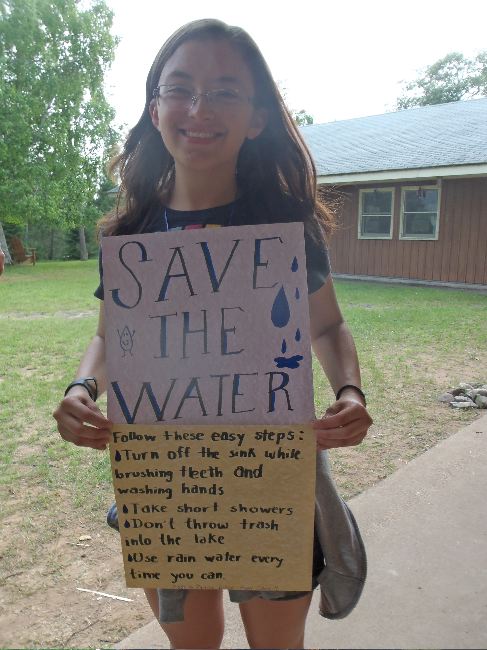 SAVE
THE
WATER
Follow these easy steps:
Turn off the sink while
brushing teeth and
washing hands
Take short showers
Don't throw trash
into the lake
Use rain water every
time you can